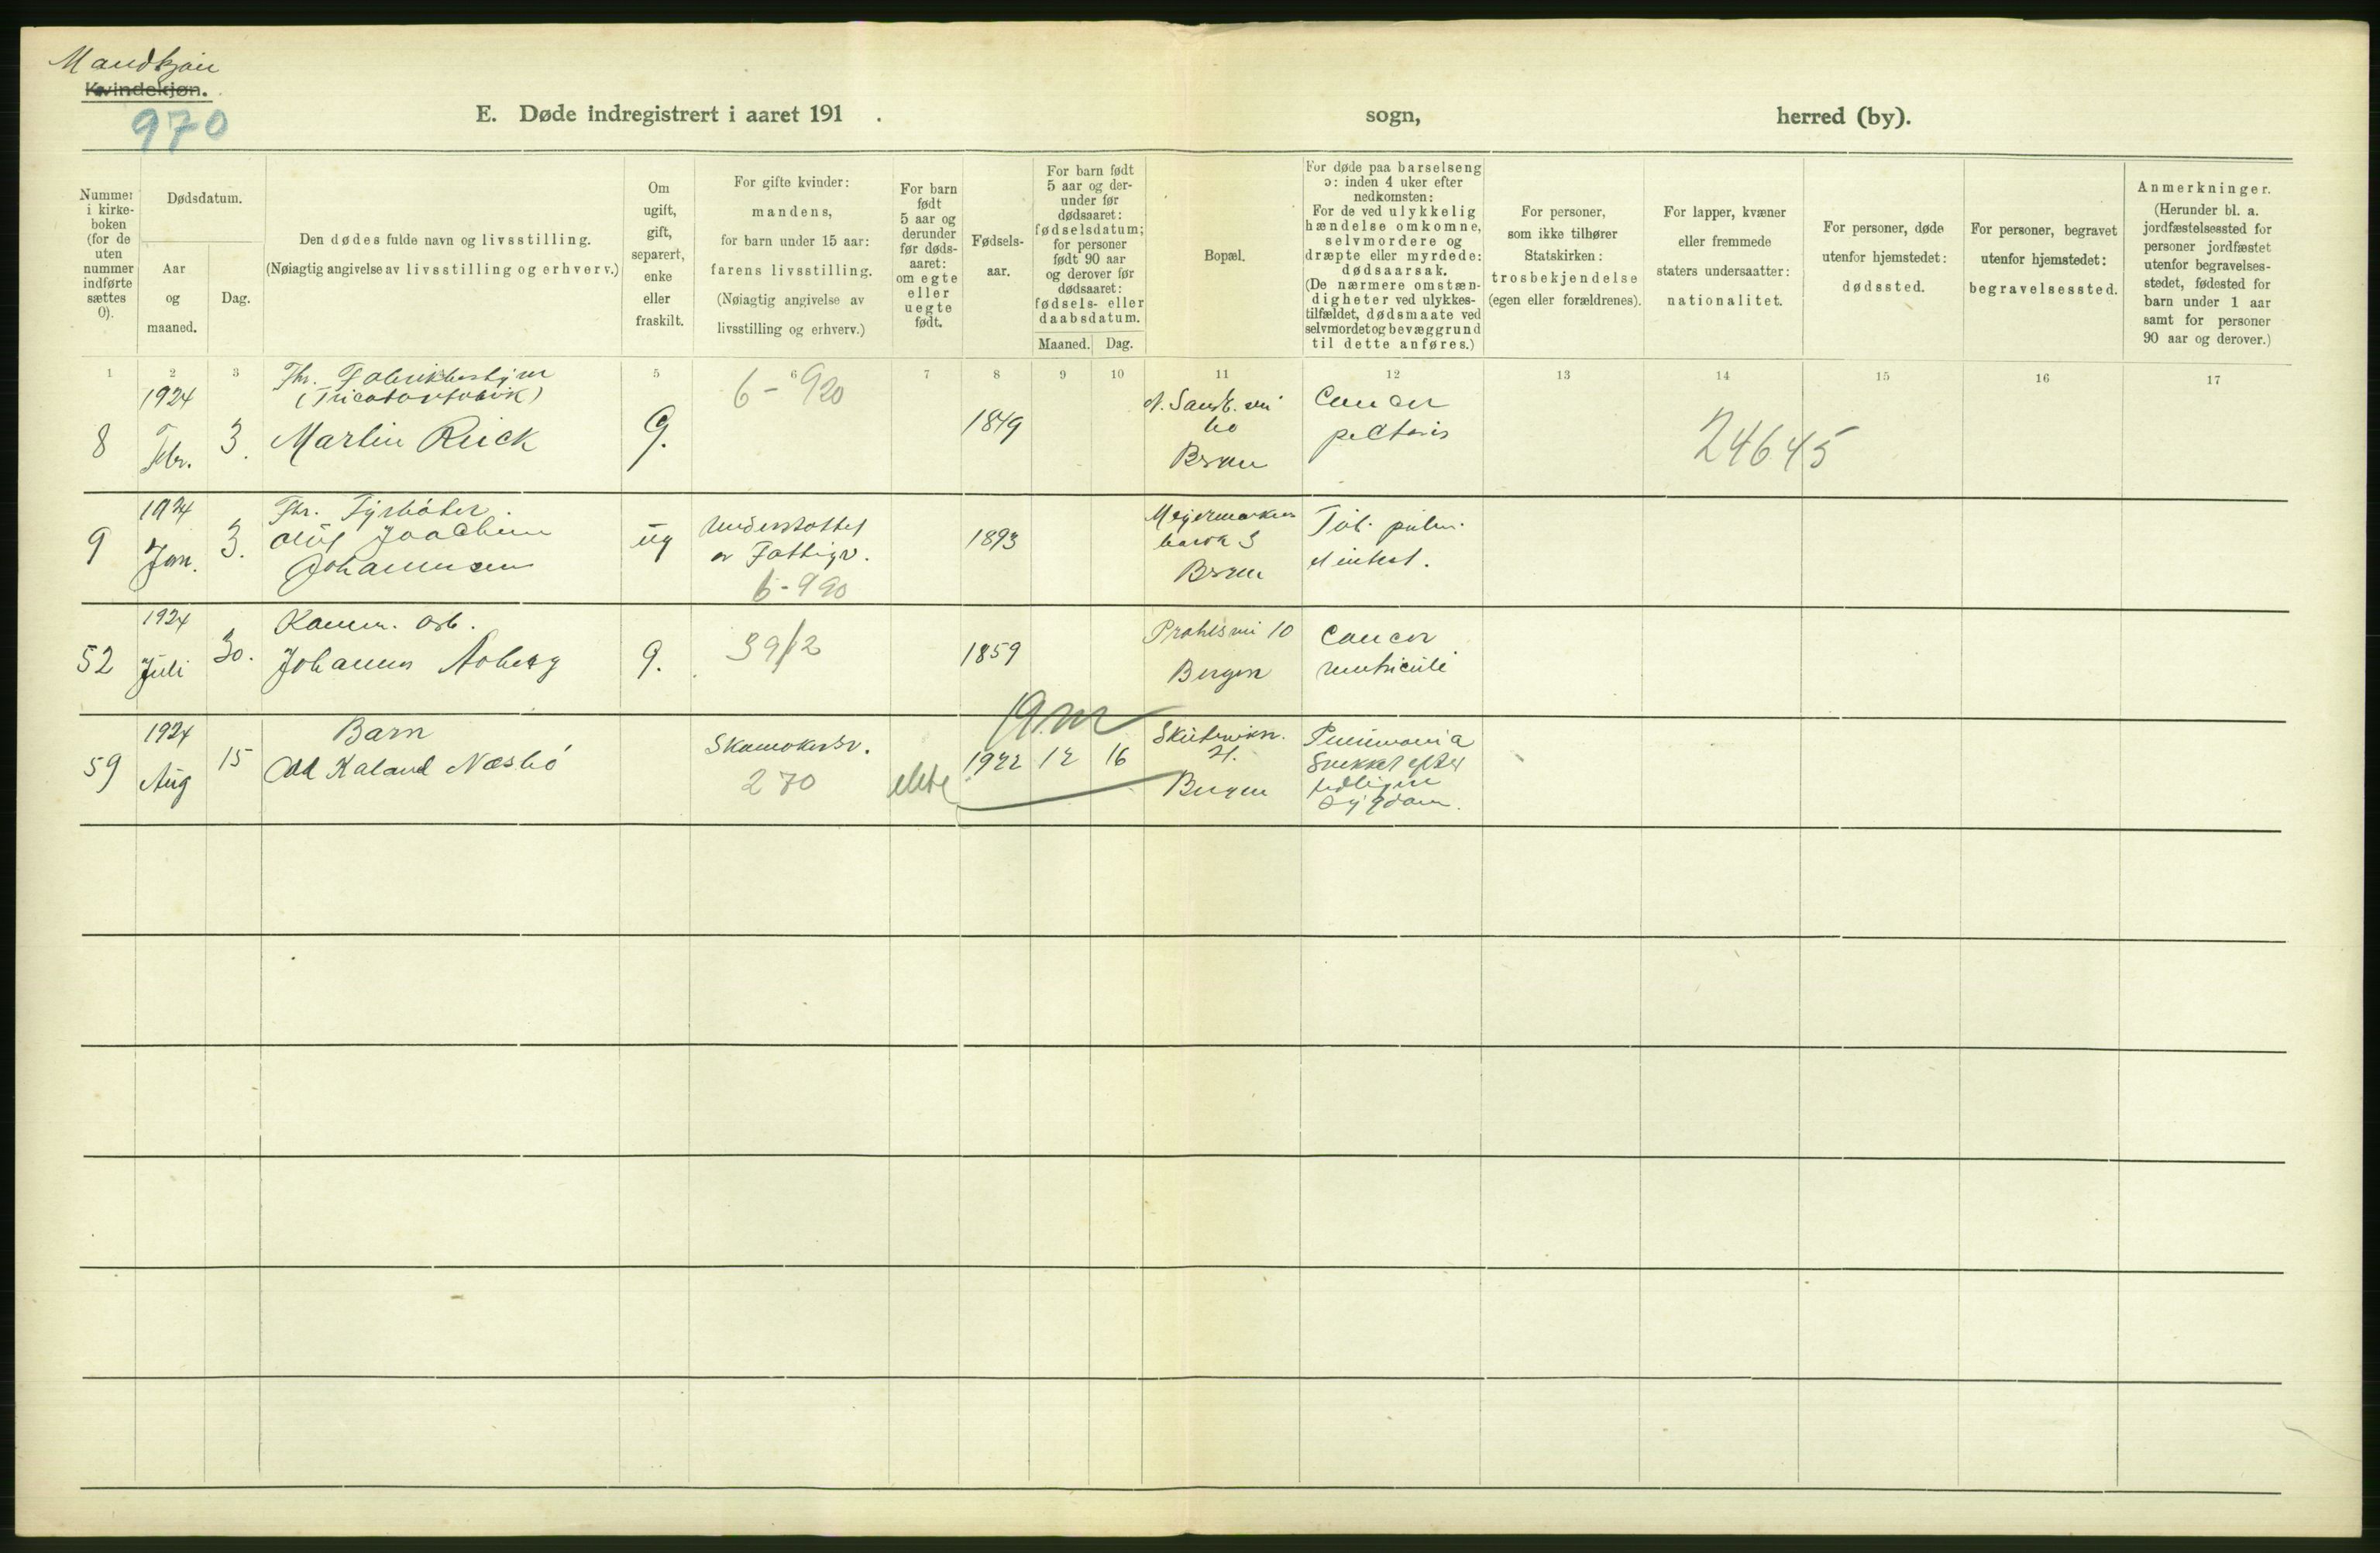 Mandkjøn
Kvindekjøn.
970
E. Døde indregistrert i aaret 191 .
sogn,
herred (by).
Nummer i kirke-boken (for de uten nummer indførte sættes 0).
Dødsdatum.
Aar og maaned.
Dag.
Den dødes fulde navn og livsstilling.
(Nøiagtig angivelse av livsstilling og erhverv.)
Om ugift, gift, separert, enke eller fraskilt.
For gifte kvinder: mandens, for barn under 15 aar: farens livsstilling. (Nøiagtig angivelse av livsstilling og erhverv.)
For barn født 5 aar og derunder før døds-aaret: om egte eller uegte født.
Fødsels-aar.
For barn født 5 aar og der-under før dødsaaret: fødselsdatum; for personer født 90 aar og derover før dødsaaret: fødsels- eller daabsdatum.
Maaned.
Dag.
Bopæl.
For døde paa barselseng ɔ: inden 4 uker efter nedkomsten: For de ved ulykkelig hændelse omkomne, selvmordere og dræpte eller myrdede: dødsaarsak. (De nærmere omstæn-digheter ved ulykkes-tilfældet, dødsmaate ved selvmordet og bevæggrund til dette anføres.)
For personer, som ikke tilhører Statskirken: trosbekjendelse (egen eller forældrenes).
For lapper, kvæner eller fremmede staters undersaatter: nationalitet.
For personer, døde utenfor hjemstedet: dødssted.
For personer, begravet utenfor hjemstedet: begravelsessted.
Anmerkninger. (Herunder bl. a. jordfæstelsessted for personer jordfæstet utenfor begravelses-stedet, fødested for barn under 1 aar samt for personer 90 aar og derover.)
1 2 3 5 6 7 8 9 10 11 12 13 14 15 16 17
Fhr. Fabrikbestyrer
(Tricotagefabrik)
1924
6-920
8 Febr. 3. Martin Reick G. 1849
Cancer
pectoris
24645
1924
Fhr. Fyrbøter.
9 Jan. 3. Oluf Joachim
Johannesen
ug
Understøttet
av Fattigv.
6-990
1893
Bergen
Tub. pulm.
et intest.
1924
52 Juli 30.
Johannes Aaberg
G.
39/2
1859
10
Bergen
Cancer
ventriculi
1924
59 Aug 15
Barn
Odd Kaland Næsbö
Skomakersv.
270
ekte
19 m
1922 12 16
Bergen
Pneumonia
Svekket efter
tidligere
Sygdom.